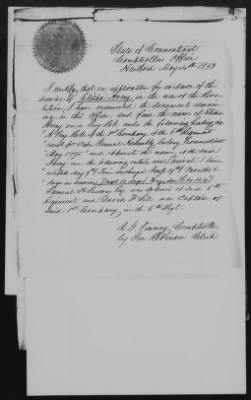 State of Connecticut
Comptrollers Office
Hartford May 4th 1853
I certify, that on application for evidence of the
service of Elisha Avery in the war of the Revo
lution, I have examined the documents remain
ing in this Office, and find the name of Elisha
Avery on a Pay Roll under the following heading viz
"A Pay Roll of the 1st Company of the 6th Regiment
raised by Order General Assembly Colony Connecticut
May 1775" and opposite the name of the said
Avery are the following entries
days in
Samuel H Parsons Esq was Colonel of said 6th
Regiment and David was Captain of
said 1st Company, in the 6th Regt.
Comptroller
by Clerk